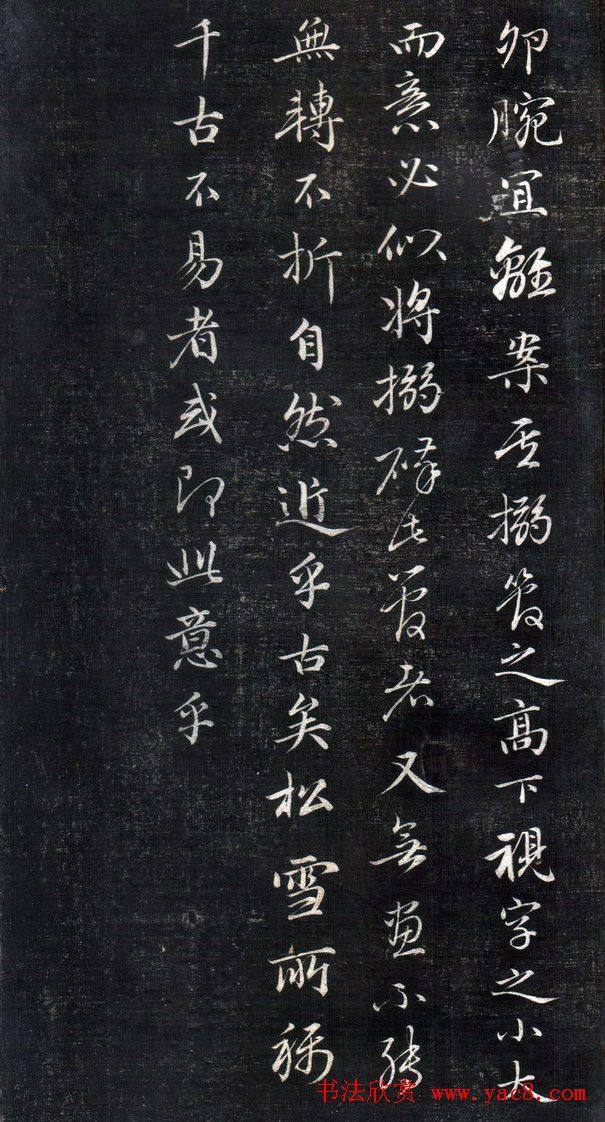 卯腕宜離案其搦管之高下視字之小大
而意必似將搦碎此管者又無畫不縛
無轉不折自然近乎古矣松雪所稱
千古不易者或即此意乎
书法欣赏 www.yac8.com